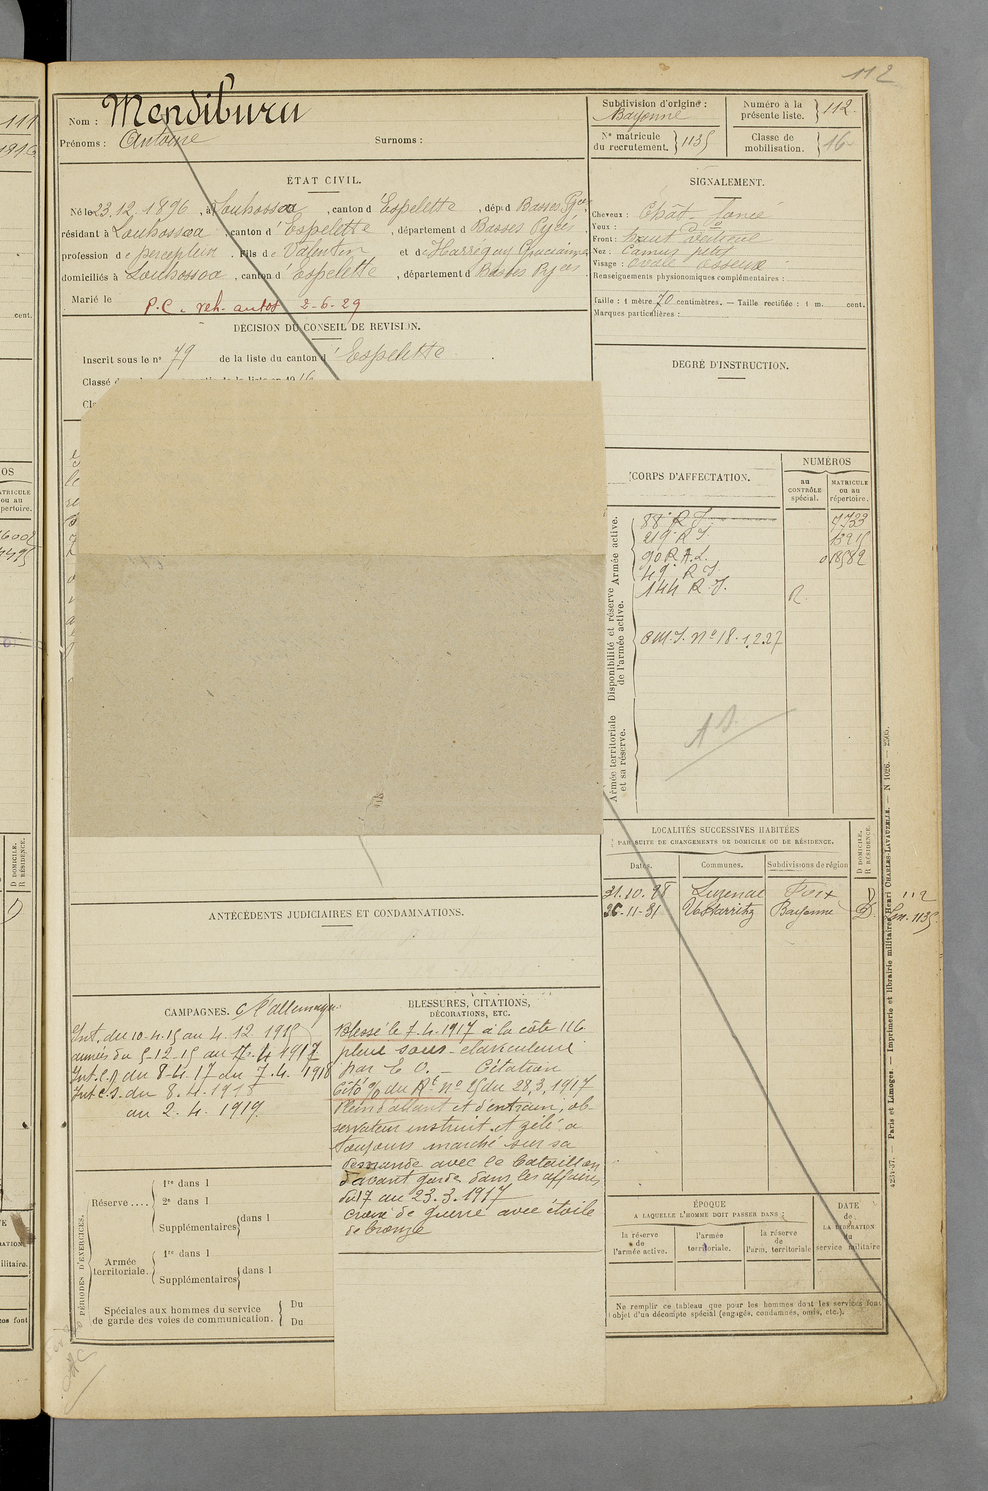 112
Nom : Mendiburu
Prénoms : Antoine
Surnoms :
Subdivision d'origine :
Bayonne
Numéro à la
présente liste. 112
N° matricule
du recrutement. 1135
Classe de
mobilisation. 16
ÉTAT CIVIL.
Né le 23.12.1896, à Louhossoa, canton d'Espelette, dép. d Basses Pyr.
résidant à Louhossoa, canton d'Espelette, département d Basses Pyrées
profession de percepteur. Fils de Valentin et de Harréguy Gracianne
domiciliés à Louhossoa, canton d'Espelette, département d Basses Pyrées
Marié le
P.C. reh. autos 2-6-29
SIGNALEMENT.
Cheveux : Chât foncé
Yeux : do
Front : haut vertical
Nez : Camus petit
Visage : ovale osseux
Renseignements physionomiques complémentaires :
Taille : 1 mètre 70 centimètres. — Taille rectifiée : 1 m. cent.
Marques particulières :
DÉCISION DU CONSEIL DE REVISION.
Inscrit sous le n° 79 de la liste du canton d'Espelette
Classé
DEGRÉ D'INSTRUCTION.
CORPS D'AFFECTATION.
NUMÉROS
au
CONTRÔLE
spécial.
MATRICULE
ou au
répertoire.
Armée active.
Disponibilité et réserve
de l'armée active.
Armée territoriale
et sa réserve.
88e R I
219e R I
90 R.A.L.
49e R I
144 R I. R
O.M.I. N° 18-1.2.27
LOCALITÉS SUCCESSIVES HABITÉES
PAR SUITE DE CHANGEMENTS DE DOMICILE OU DE RÉSIDENCE.
Dates.
Communes.
Subdivisions de région
D DOMICILE.
R RÉSIDENCE.
Luzenac Foix D
26-11-31 Ustarritz Bayonne D.
ANTÉCÉDENTS JUDICIAIRES ET CONDAMNATIONS.
CAMPAGNES. C/ l'allemagne
Int. du 10-4.15 au 4.12 1915
armées du 5-12-15 au 7-4 1917
Int. c.p du 8-4 17 du 7.4. 1918
Int c.s. du 8.4.1918
au 2.4.1919
BLESSURES, CITATIONS,
DÉCORATIONS, ETC.
Blessé le 7.4.1917 à la côte 116
plaie sous-claviculaire
par E O. — Citation
Cité o/o du Rt n° 25 du 28.3.1917
Plein d'allant et d'entrain, ob-
servateur instruit et zélé a
toujours marché sur sa
demande avec le bataillon
d'avant garde dans les affaires
du 17 au 23.3.1917
Croix de guerre avec étoile
de bronze
PÉRIODES D'EXERCICES.
Réserve....
1re dans l
2e dans l
Supplémentaires dans l
Armée
territoriale.
1re dans l
Supplémentaires dans l
Spéciales aux hommes du service
de garde des voies de communication.
Du
Du
ÉPOQUE
A LAQUELLE L'HOMME DOIT PASSER DANS :
la réserve
de
l'armée active.
l'armée
territoriale.
la réserve
de
l'arm. territoriale
DATE
de
LA LIBÉRATION
du
service militaire
Ne remplir ce tableau que pour les hommes dont les services font
l'objet d'un décompte spécial (engagés, condamnés, omis, etc.).
4234-37. — Paris et Limoges. — Imprimerie et librairie militaires Henri CHARLES-LAVAUZELLE. — N 1026. —